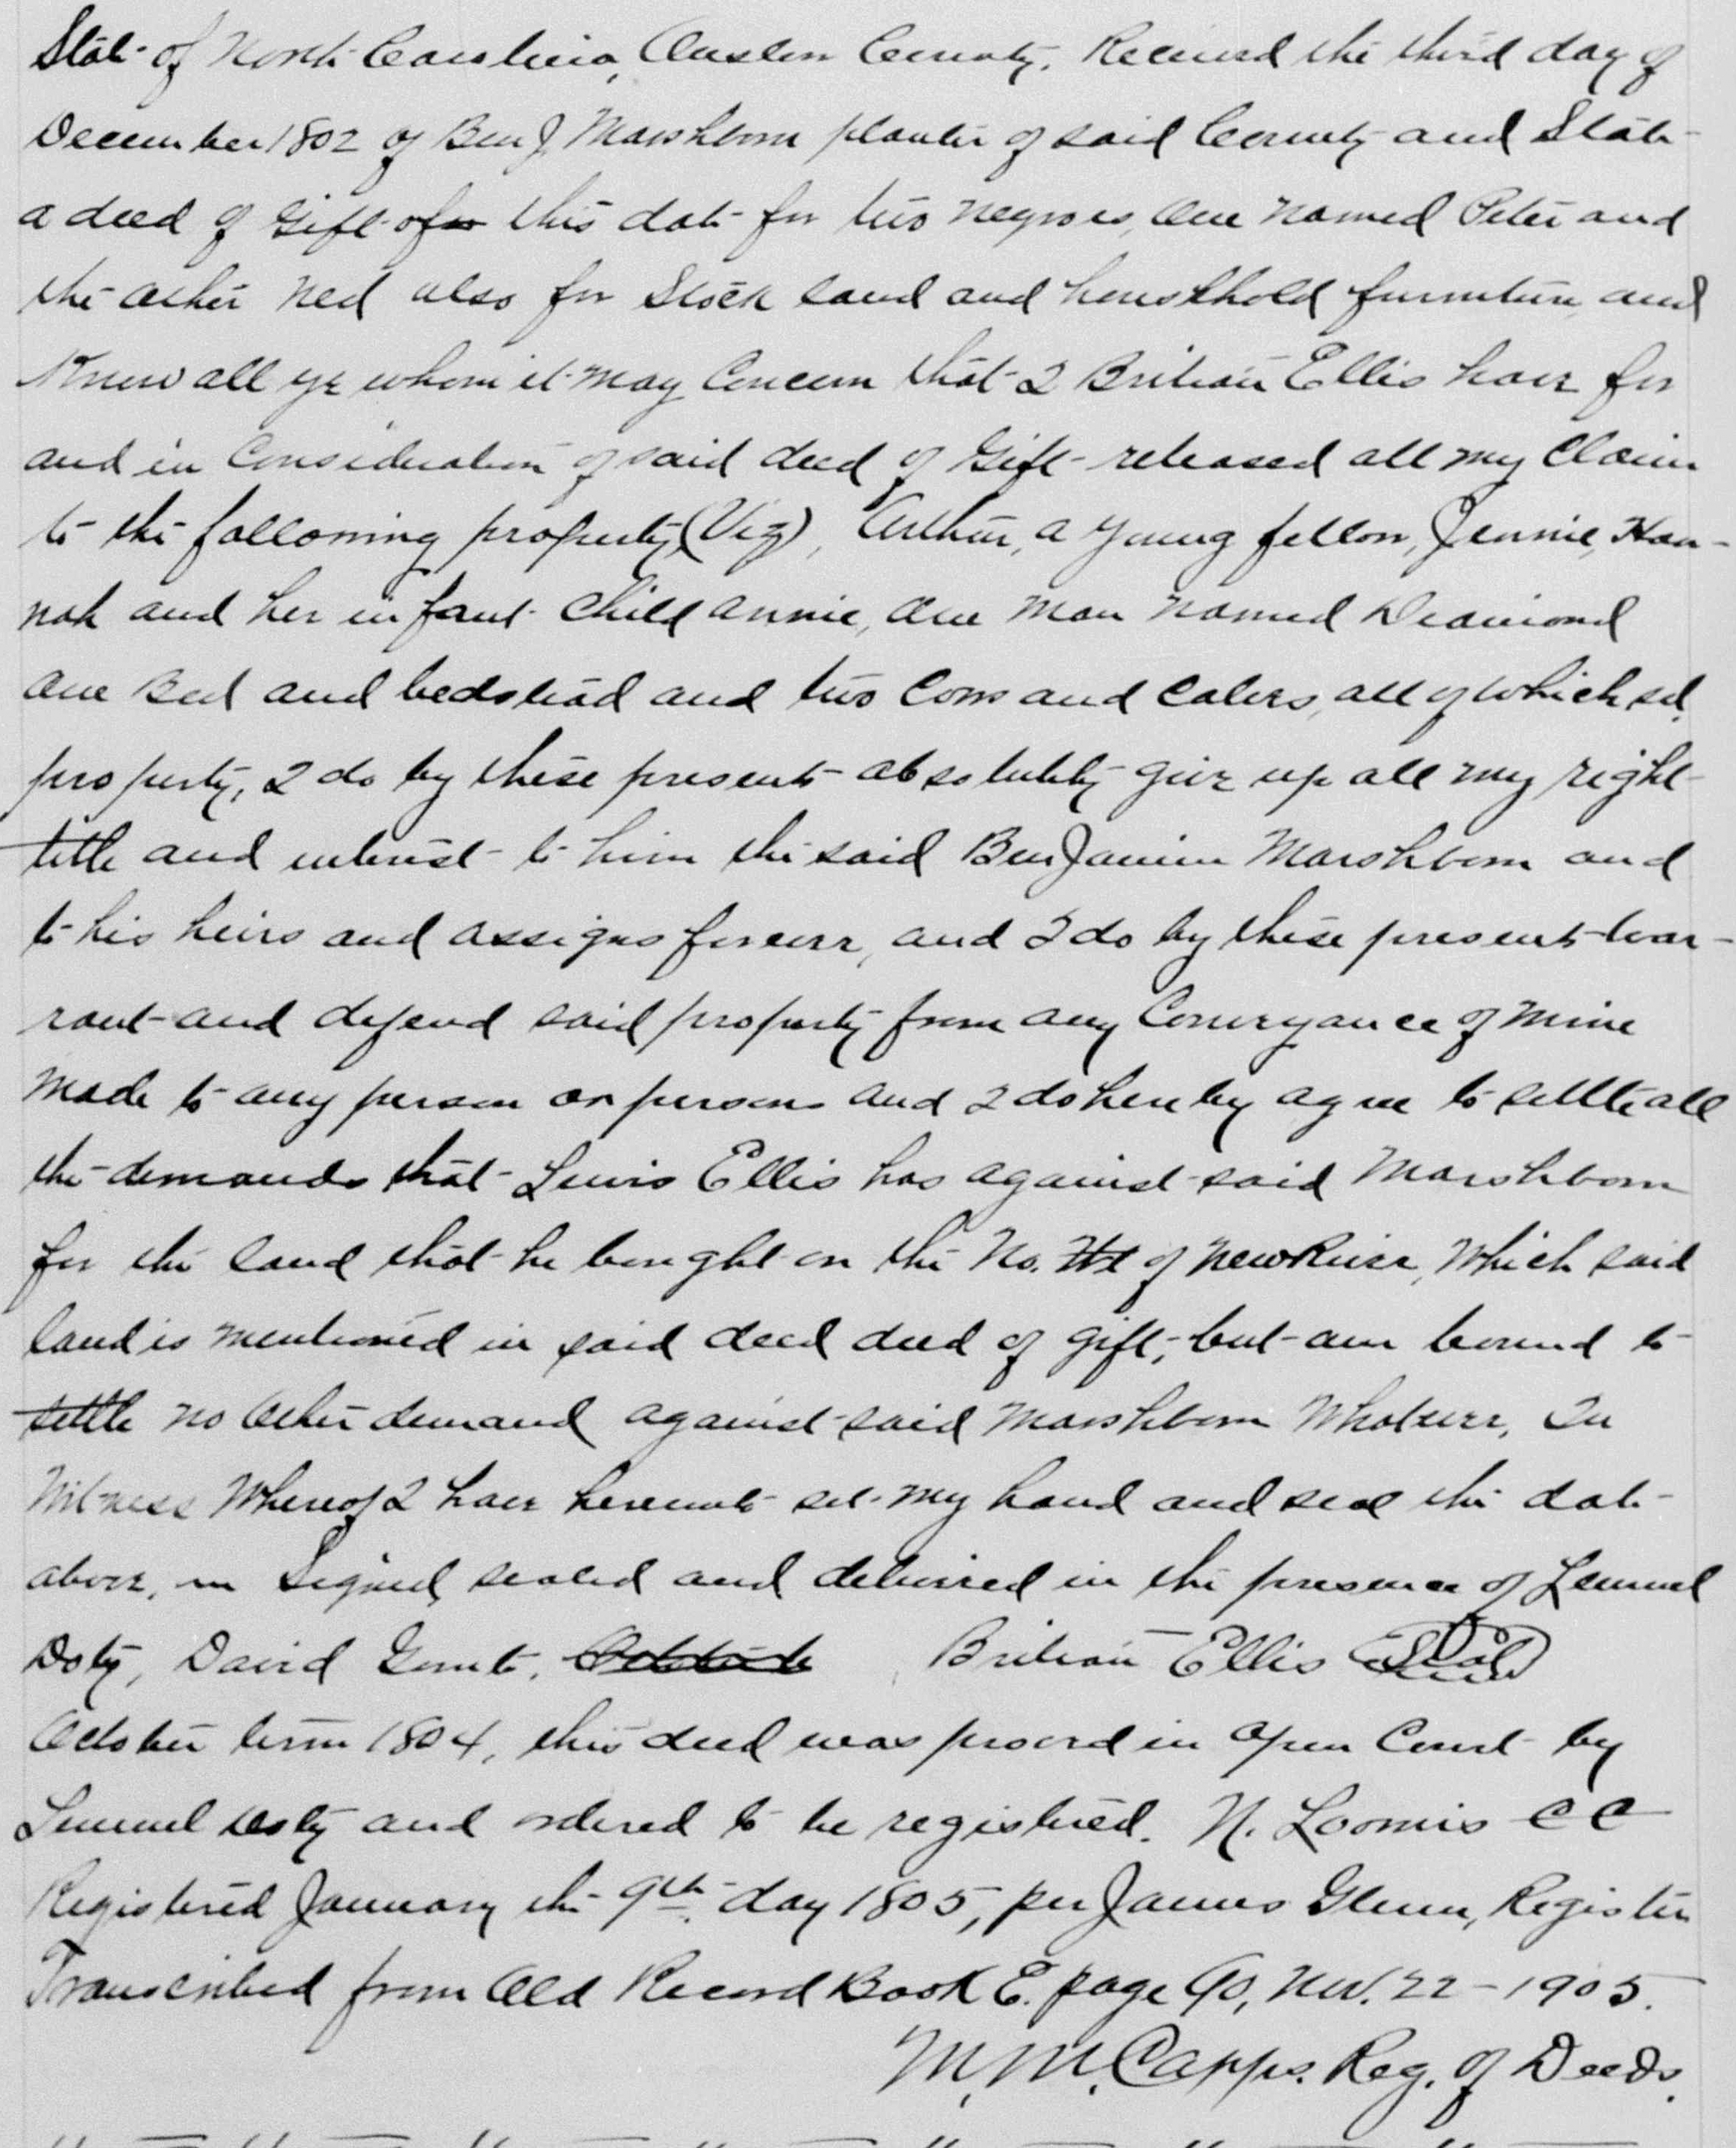 State of North Carolina, Onslow County. Received the third day of
December 1802 of Benj Marshborn planter of said County and State
a deed of Gift of this date for two negroes, One named Peter and
the other Ned also for Stock land and houshhold furniture, and
Know all ye whom it may Concern that I Britian Ellis have for
and in Consideration of said deed of Gift released all my Claim
to the following property (Viz), Arthur, a young fellow, Jennie, Han-
nah and her infant child annie, one man named Diamond
One Bed and bedstead and two Cows and Calves, all of which sd.
property, I do by these presents absolutely give up all my right
title and interest to him the said BenJamin Marshborn and
to his heirs and assigns forever, and I do by these presents war-
rant and defend said property from any Conveyance of mine
made to any person or persons and I do hereby agree to settle all
the demands that Lewis Ellis has against said Marshborn
for the land that he bought on the No. of New River, Which said
land is mentioned in said deed deed of gift, but am bound to
settle no other demand against said Marshborn Whatever, In
Witness Whereof I have hereunto set my hand and seal the date
above, Signed, sealed and delivered in the presence of Lemuel
Doty, David Britian Ellis Seal
October term 1804, this deed was proved in open Court by
Lemuel Doty and ordered to be registered. N. Loomis CC
Registered January the 9th day 1805, per James Glenn, Register
Transcribed from Old Record Book E. page 90, Nov. 22-1905.
M. M. Capps. Reg. of Deeds.